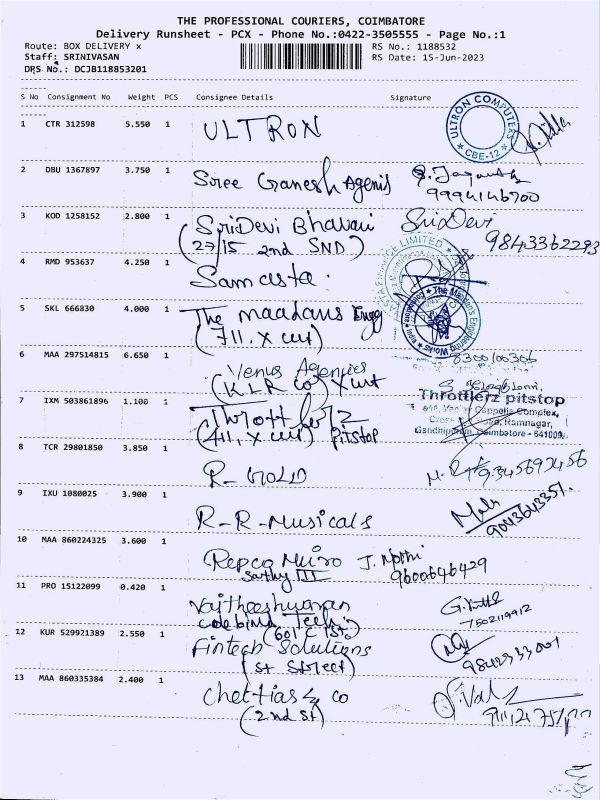 THE PROFESSIONAL COURIERS, COIMBATORE
Delivery Runsheet - PCX - Phone No.:0422-3505555 - Page No.:1
Route: BOX DELIVERY x
RS No.: 1188532
Staff: SRINIVASAN
RS Date: 15-Jun-2023
DRS No.: DCJB118853201
S No Consignment No Weight PCS Consignee Details Signature
1 CTR 312598 5.550 1 ULTRON
ULTRON COMPUTERS
* CBE-12 *
2 DBU 1367897 3.750 1 Sree Ganesh Agenis
9994146700
3 KOD 1258152 2.800 1 SriDevi Bhavani SriDevi
(27/15 2nd SND) 9843362293
4 RMD 953637 4.250 1 Samasta.
5 SKL 666830 4.000 1 The maadans Engg
(711. X cut)
6 MAA 297514815 6.650 1 Venus Agencies 8300100306
(K.L.R co) X cut
7 IXM 503861896 1.100 1 Throttlerz
(711, X cut) pitstop
Throttlerz pitstop
Complex,
Ramnagar,
Gandhipuram, Coimbatore - 641009
8 TCR 29801850 3.850 1 R-GOLD
9345693456
9 IXU 1080025 3.900 1 R-R-Musicals
9043643351.
10 MAA 860224325 3.600 1 Repco Micro J.
Sarthy III 9600646429
11 PRO 15122099 0.420 1 Vaitheeshwaran
Tech.
(601 C 1st.)
7502119912
12 KUR 529921389 2.550 1 Fintech Solutions
(st street)
9842333001
13 MAA 860335384 2.400 1 Chettias & co
(2nd st)